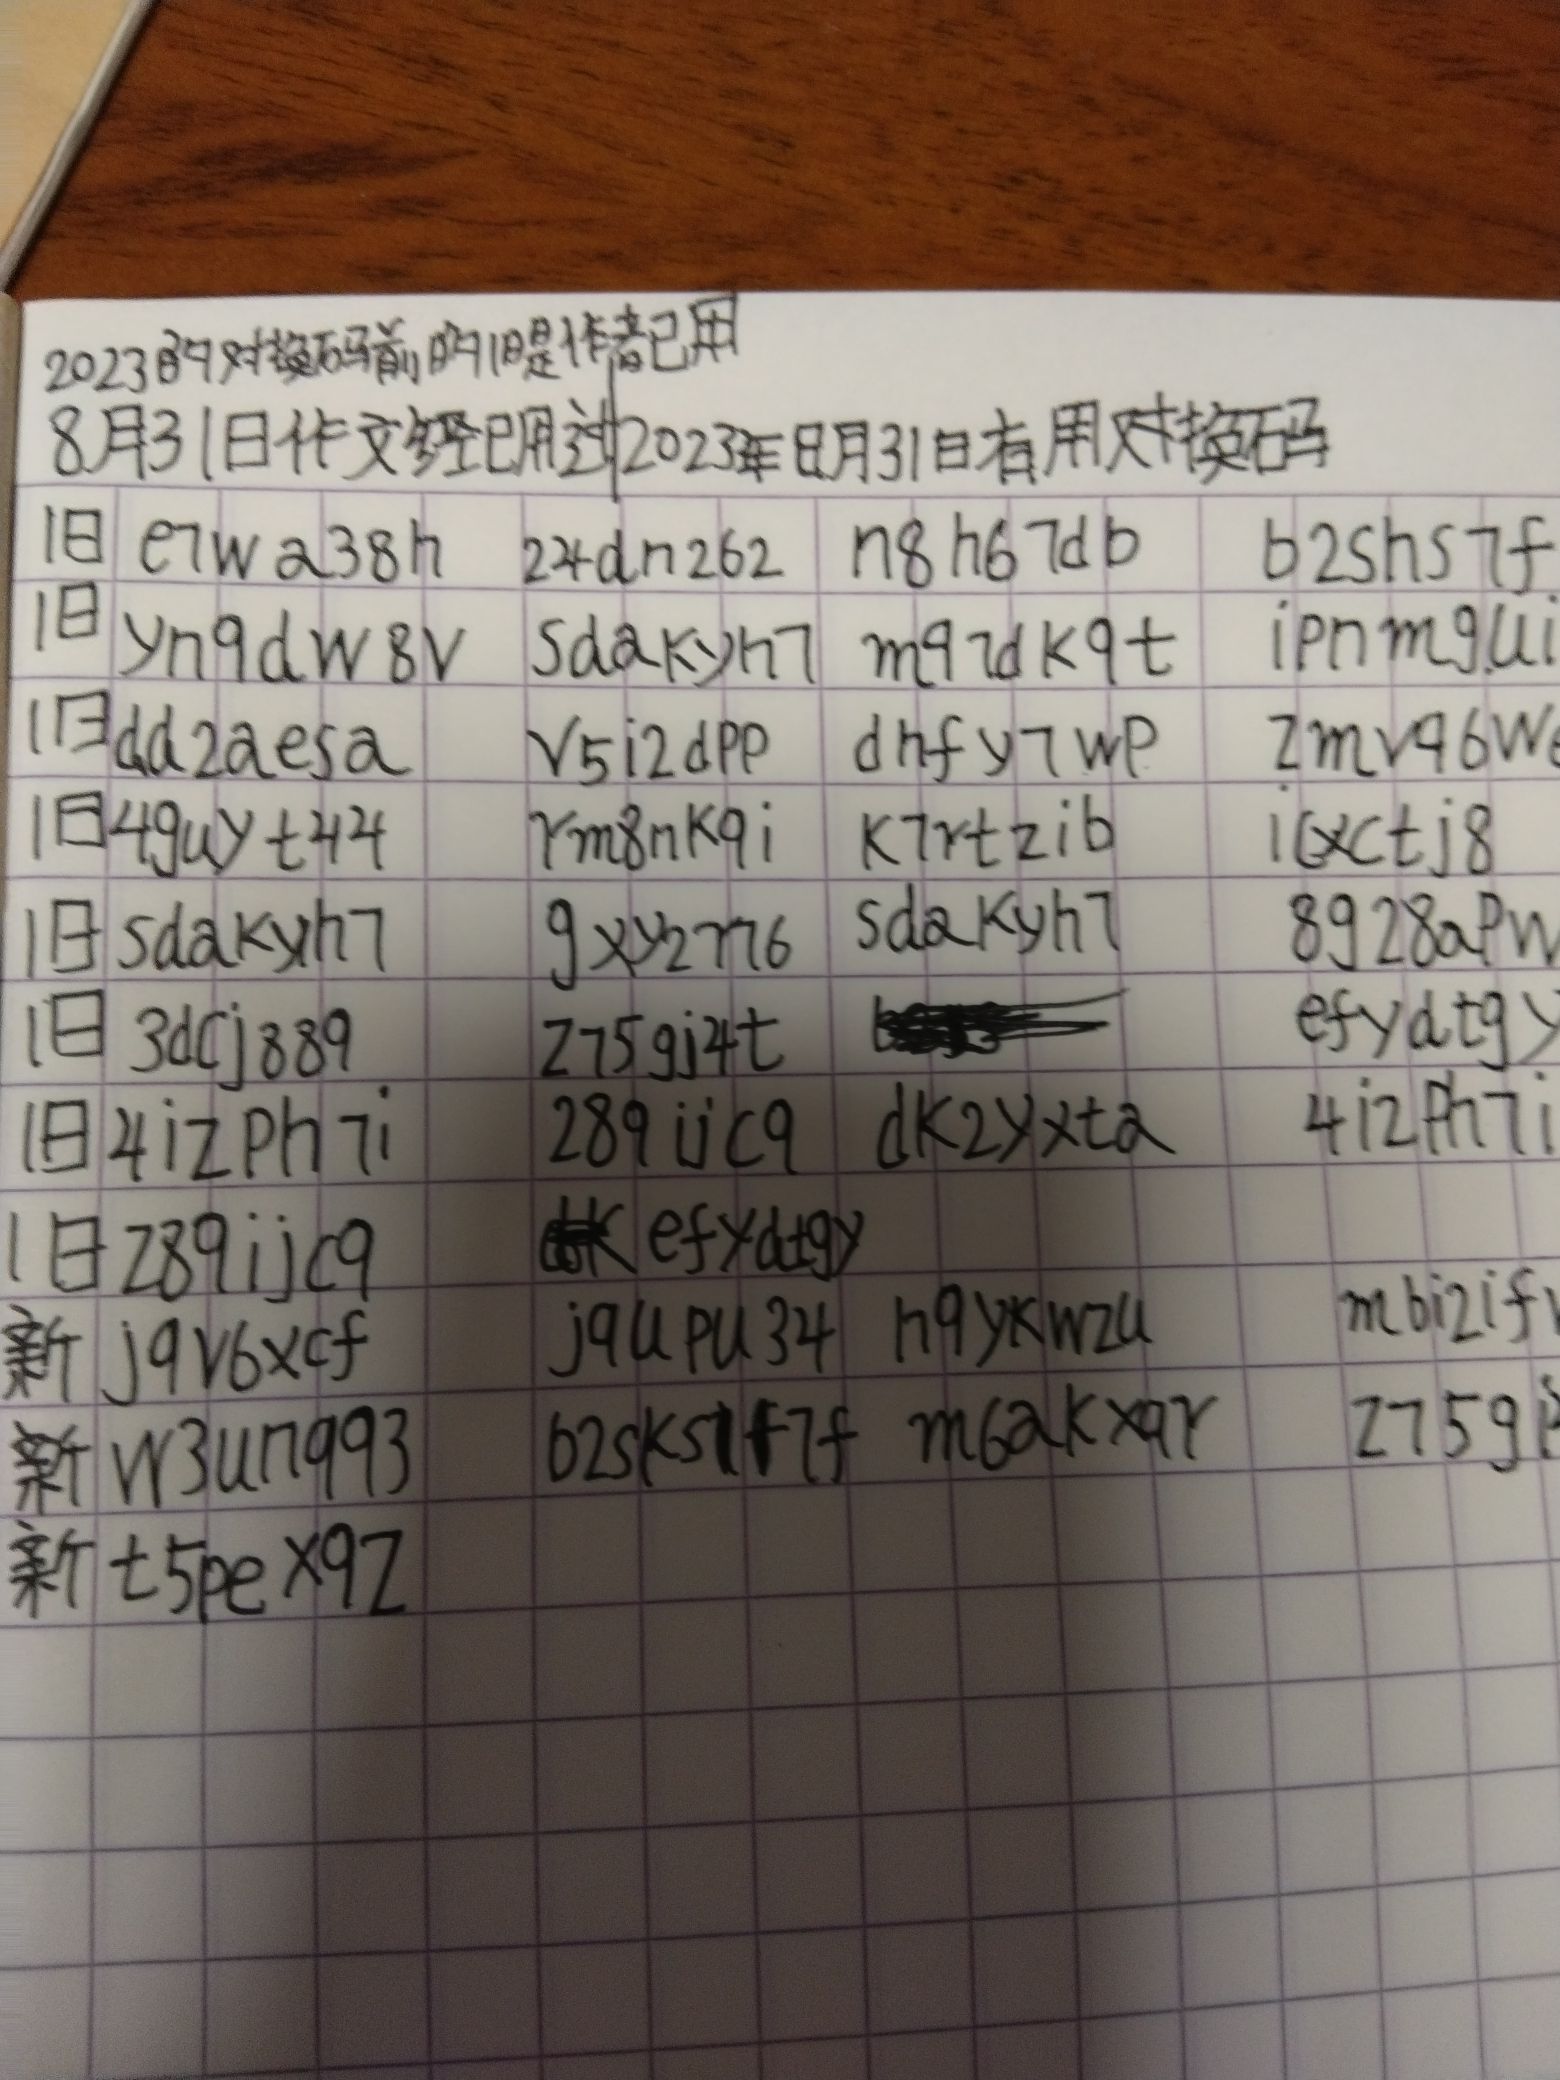 2023的对换码前的旧是作者已用
8月31日作文经已用过2023年8月31日有用对换码
旧 e7wa38h 24dn262 n8h67db b2shs7f
旧 yn9dw8v sdakyh7 m97dk9t ipnmgui
旧 dd2aesa v5i2dpp dhfy7wp zmv96w
旧 49uyt44 rm8nk9i k7rtzib
旧 sdakyh7 sdakyh7 8g28apw
旧 3dcj889 z75gj4t efydtgy
旧 4izph7i 289ijc9 dk2yxta 4izph7i
旧 z89ijc9 efydtgy
新 j9v6xcf j9upu34 h9ykwzu mbi2if
新 w3un993 m6akx9r z75g
新 t5pex9z